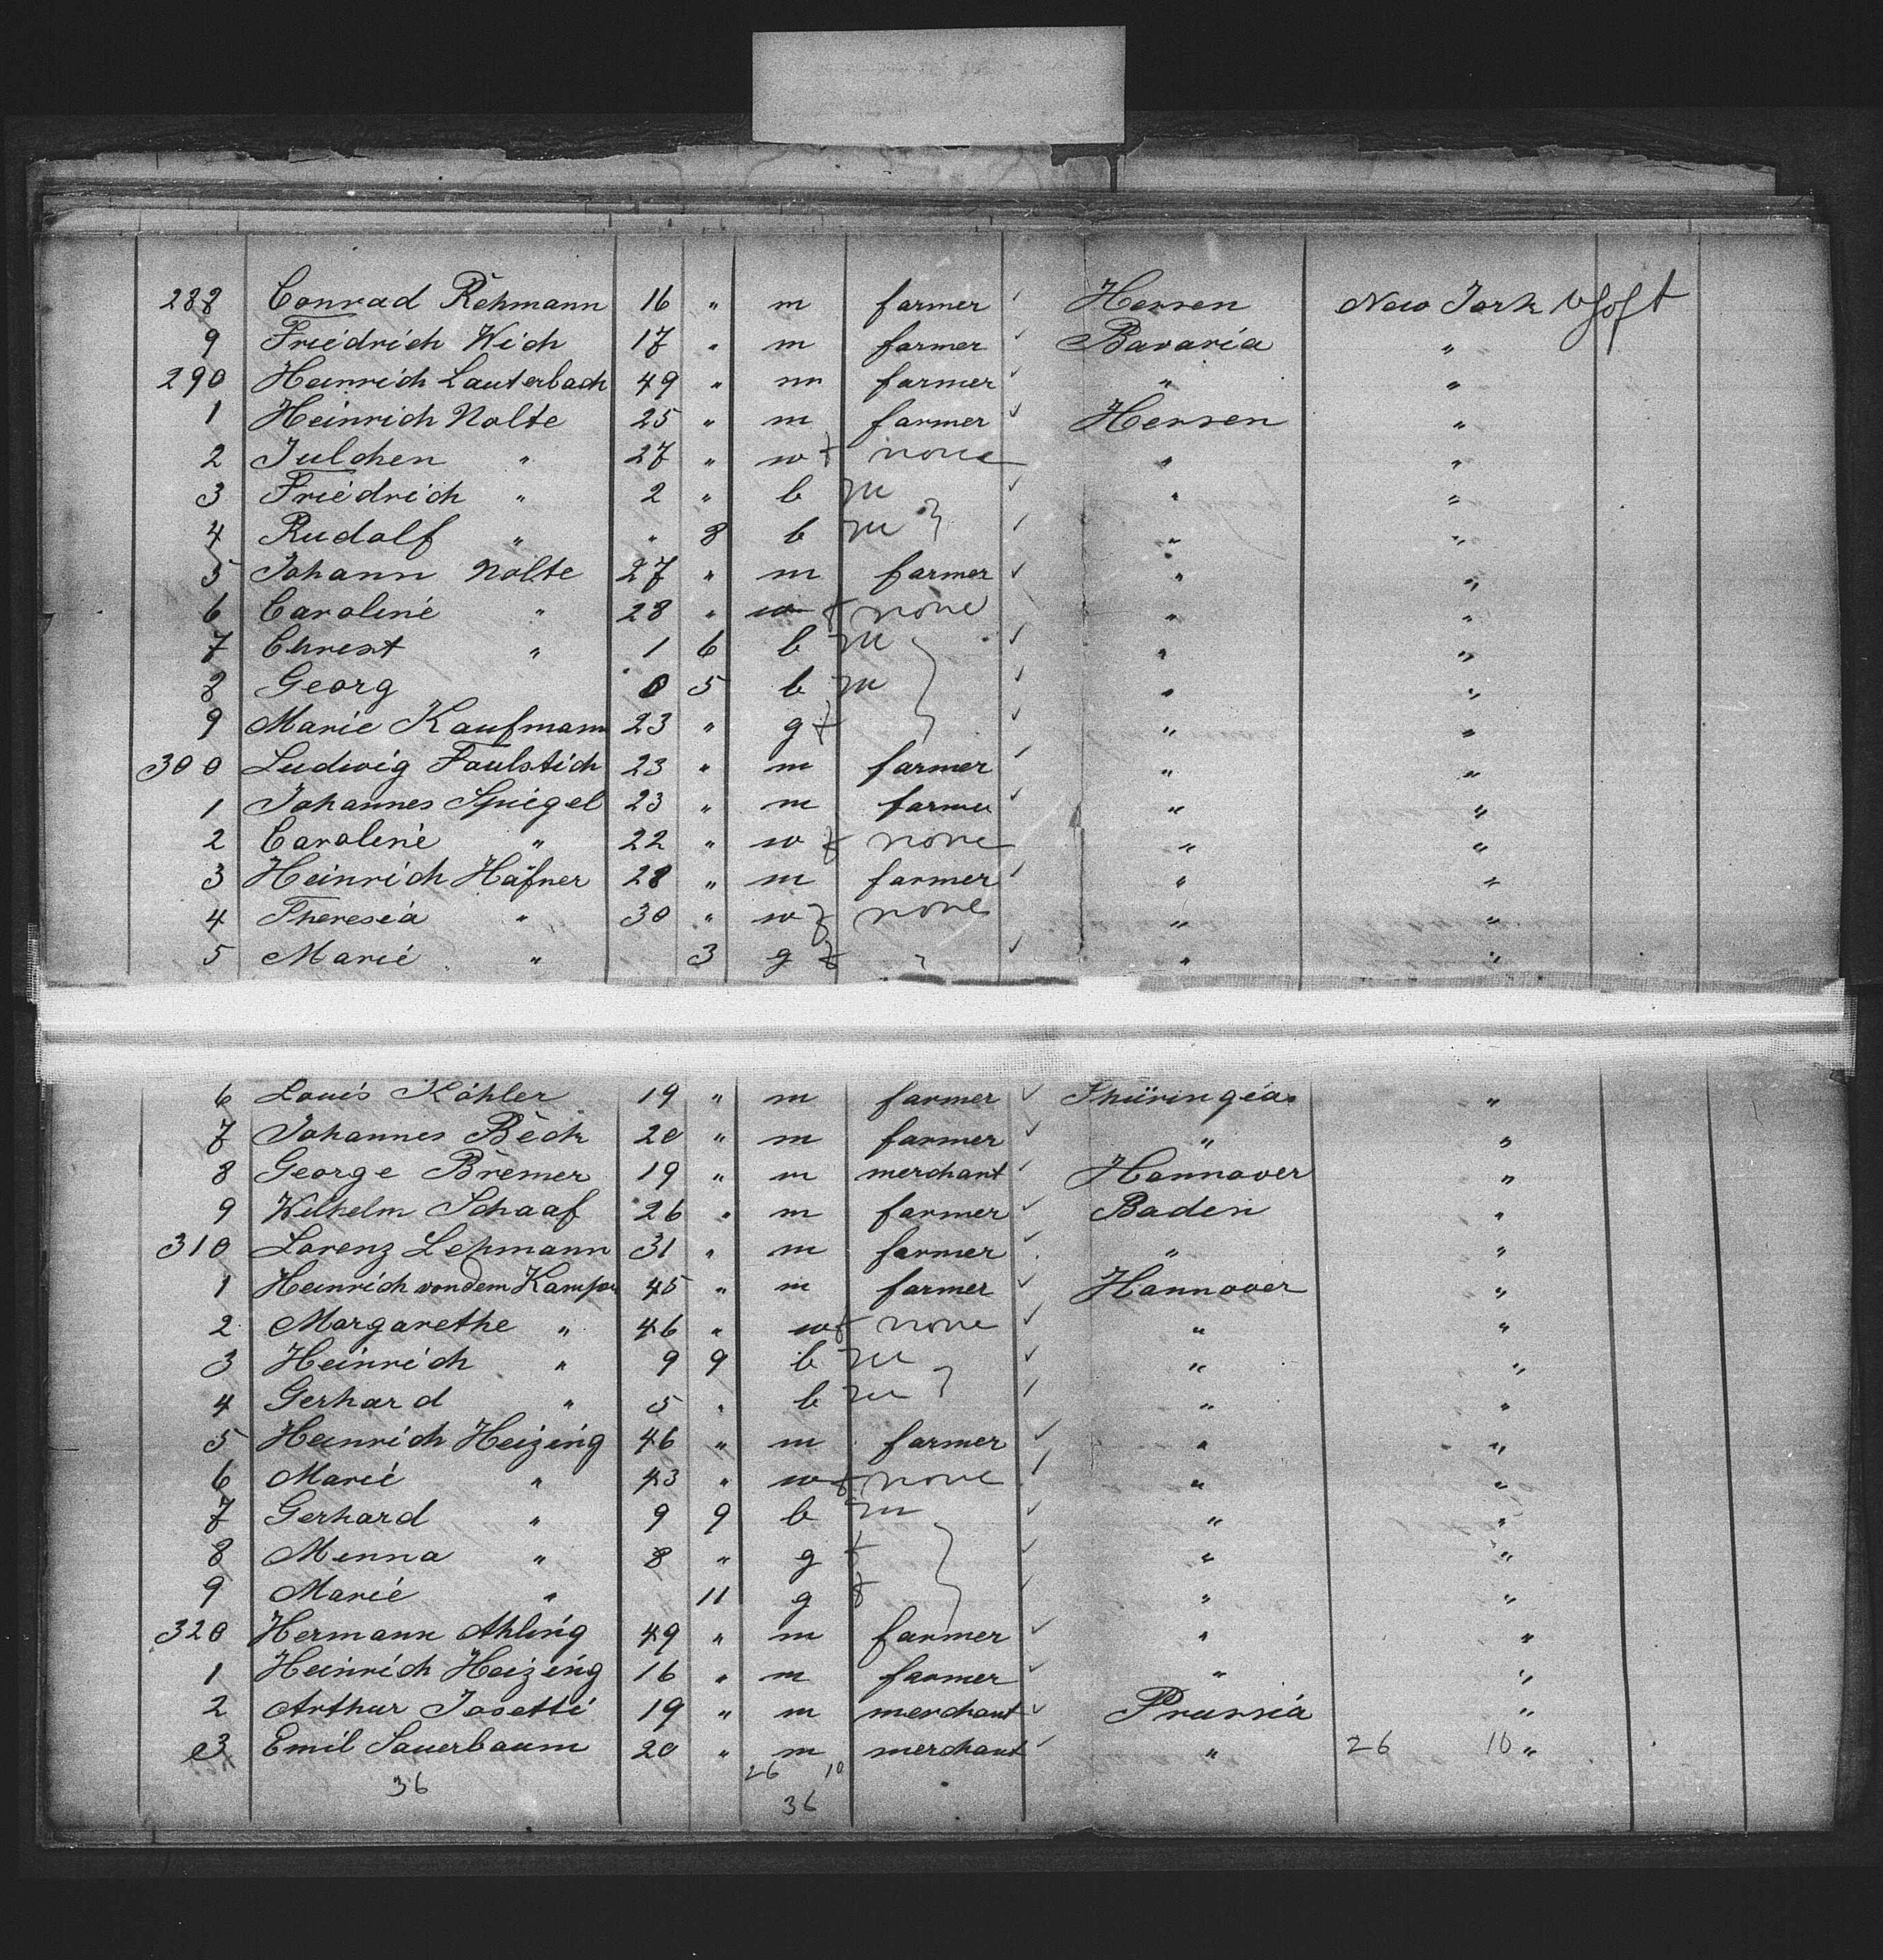 288 Conrad Rehmann 16 " m farmer ✓ Hessen New York
9 Friedrich Wich 17 " m farmer ✓ Bavaria "
290 Heinrich Lauterbach 49 " m farmer ✓ " "
1 Heinrich Nolte 25 " m farmer ✓ Hessen "
2 Julchen " 27 " w f none " "
3 Friedrich " 2 " b m ✓ " "
4 Rudolf " " 8 b m ✓ " "
5 Johann Nolte 27 " m farmer ✓ " "
6 Caroline " 28 " w f none " "
7 Christ " 1 6 b m ✓ " "
8 Georg 0 5 b m ✓ " "
9 Marie Kaufmann 23 " g f ✓ " "
300 Ludwig Faulstich 23 " m farmer ✓ " "
1 Johannes Spiegel 23 " m farmer ✓ " "
2 Caroline " 22 " w f none " "
3 Heinrich Häfner 28 " m farmer ✓ " "
4 Theresia " 30 " w f none " "
5 Marie " 3 g f ✓ " "
6 Louis Köhler 19 " m farmer ✓ Thüringia "
7 Johannes Bech 20 " m farmer ✓ " "
8 George Bremer 19 " m merchant ✓ Hannover "
9 Wilhelm Schaaf 26 " m farmer ✓ Baden "
310 Lorenz Lehmann 31 " m farmer ✓ " "
1 Heinrich von dem Kampe 45 " m farmer ✓ Hannover "
2 Margarethe " 46 " w f none ✓ " "
3 Heinrich " 9 9 b m ✓ " "
4 Gerhard " 5 " b m ✓ " "
5 Heinrich Heizing 46 " m farmer ✓ " "
6 Marie " 43 " w f none ✓ " "
7 Gerhard " 9 9 b m ✓ " "
8 Minna " 8 " g f ✓ " "
9 Marie " 11 g f ✓ " "
320 Hermann Ahling 49 " m farmer ✓ " "
1 Heinrich Heizing 16 " m farmer ✓ " "
2 Arthur Josetti 19 " m merchant ✓ Prussia "
3 Emil Sauerbaum 20 " m merchant ✓ " 26 10 "
26 10
36 36